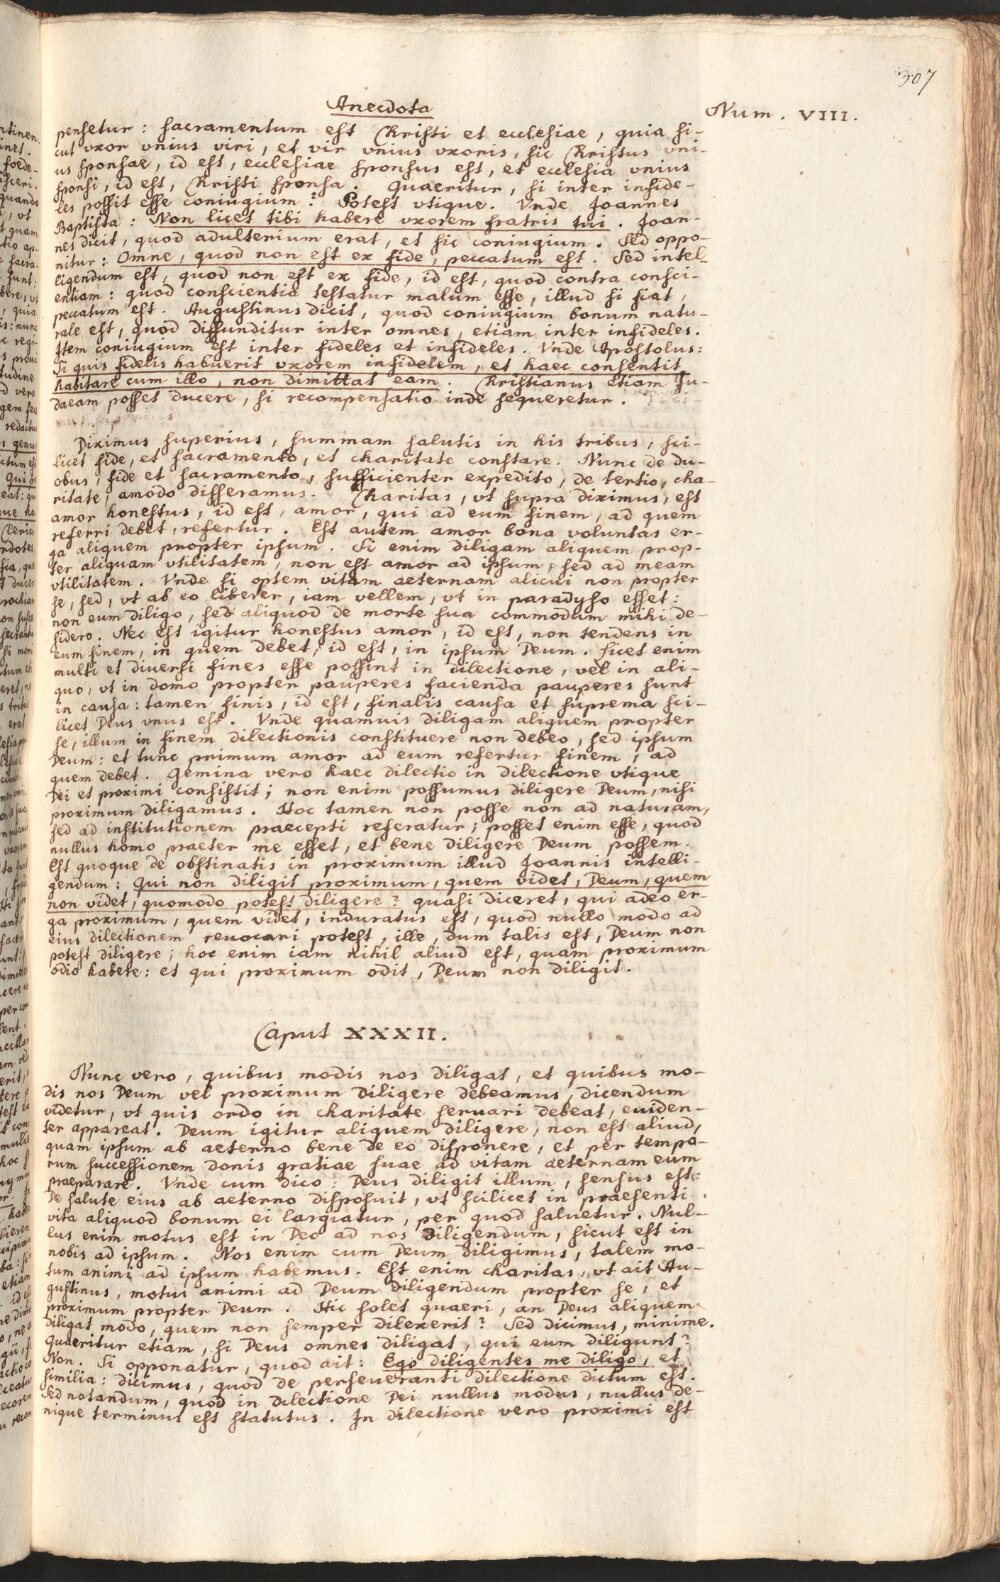 307
Anecdota
Num. VIII.
pensetur: sacramentum est Christi et ecclesiae, quia si-
cut vxor vnius viri, et vir vnius vxoris, sic Christus vni-
us sponsae, id est, ecclesiae sponsus est, et ecclesia vnius
sponsi, id est, Christi sponsa. Quaeritur, si inter infide-
les possit esse coniugium? Potest vtique. Vnde Joannes
Baptista: Non licet tibi habere vxorem fratris tui. Joan-
nes dicit, quod adulterium erat, et sic coniugium. Sed oppo-
nitur: Omne, quod non est ex fide, peccatum est. Sed intel-
ligendum est, quod non est ex fide, id est, quod contra consci-
entiam: quod conscientia testatur malum esse, illud si fiat,
peccatum est. Augustinus dicit, quod coniugium bonum natu-
rale est, quod diffunditur inter omnes, etiam inter infideles.
Item coniugium est inter fideles et infideles. Vnde Apostolus:
Si quis fidelis habuerit vxorem infidelem, et haec consentit
habitare cum illo, non dimittat eam. Christianus etiam Ju-
daeam posset ducere, si recompensatio inde sequeretur.
Diximus superius, summam salutis in his tribus, sci-
licet fide, et sacramento, et charitate constare. Nunc de du-
obus, fide et sacramento, sufficienter expedito, de tertio, cha-
ritate, amodo disseramus. Charitas, vt supra diximus, est
amor honestus, id est, amor, qui ad eum finem, ad quem
referri debet, refertur. Est autem amor bona voluntas er-
ga aliquem propter ipsum. Si enim diligam aliquem prop-
ter aliquam vtilitatem, non est amor ad ipsum, sed ad meam
vtilitatem. Vnde si optem vitam aeternam alicui non propter
se, sed, vt ab eo liberer, iam vellem, vt in paradyso esset:
non eum diligo, sed aliquod de morte sua commodum mihi de-
sidero. Nec est igitur honestus amor, id est, non tendens in
eum finem, in quem debet, id est, in ipsum Deum. Licet enim
multi et diversi fines esse possint in dilectione, vel in ali-
quo, vt in domo propter pauperes facienda pauperes sunt
in causa: tamen finis, id est, finalis causa et suprema sci-
licet Deus vnus est. Vnde quamuis diligam aliquem propter
se, illum in finem dilectionis constituere non debeo, sed ipsum
Deum: et tunc primum amor ad eum refertur finem, ad
quem debet. Gemina vero haec dilectio in dilectione vtique
Dei et proximi consistit; non enim possumus diligere Deum, nisi
proximum diligamus. Hoc tamen non posse non ad naturam,
sed ad institutionem praecepti referatur; posset enim esse, quod
nullus homo praeter me esset, et bene diligere Deum possem.
Est quoque de obstinatis in proximum illud Joannis intelli-
gendum: Qui non diligit proximum, quem videt, Deum, quem
non videt, quomodo potest diligere? quasi diceret, qui adeo er-
ga proximum, quem videt, induratus est, quod nullo modo ad
eius dilectionem reuocari potest, ille, dum talis est, Deum non
potest diligere; hoc enim iam nihil aliud est, quam proximum
odio habere: et qui proximum odit, Deum non diligit.
Caput XXXII.
Nunc vero, quibus modis nos diligat, et quibus mo-
dis nos Deum vel proximum diligere debeamus, dicendum
videtur, vt quis ordo in charitate seruari debeat, euiden-
ter appareat. Deum igitur aliquem diligere, non est aliud,
quam ipsum ab aeterno bene de eo disponere, et per tempo-
rum successionem donis gratiae suae ad vitam aeternam eum
praeparare. Vnde cum dico: Deus diligit illum, sensus est:
De salute eius ab aeterno disposuit, vt scilicet in praesenti
vita aliquod bonum ei largiatur, per quod saluetur. Nul-
lus enim motus est in Deo ad nos diligendum, sicut est in
nobis ad ipsum. Nos enim cum Deum diligimus, talem mo-
tum animi ad ipsum habemus. Est enim charitas, vt ait Au-
gustinus, motus animi ad Deum diligendum propter se, et
proximum propter Deum. Hic solet quaeri, an Deus aliquem
diligat modo, quem non semper dilexerit? Sed dicimus, minime.
Quaeritur etiam, si Deus omnes diligat, qui eum diligunt?
Non. Si opponatur, quod ait: Ego diligentes me diligo, et
similia: dicimus, quod de perseueranti dilectione dictum est.
Sed notandum, quod in dilectione Dei nullus modus, nullus de-
nique terminus est statutus. In dilectione vero proximi est